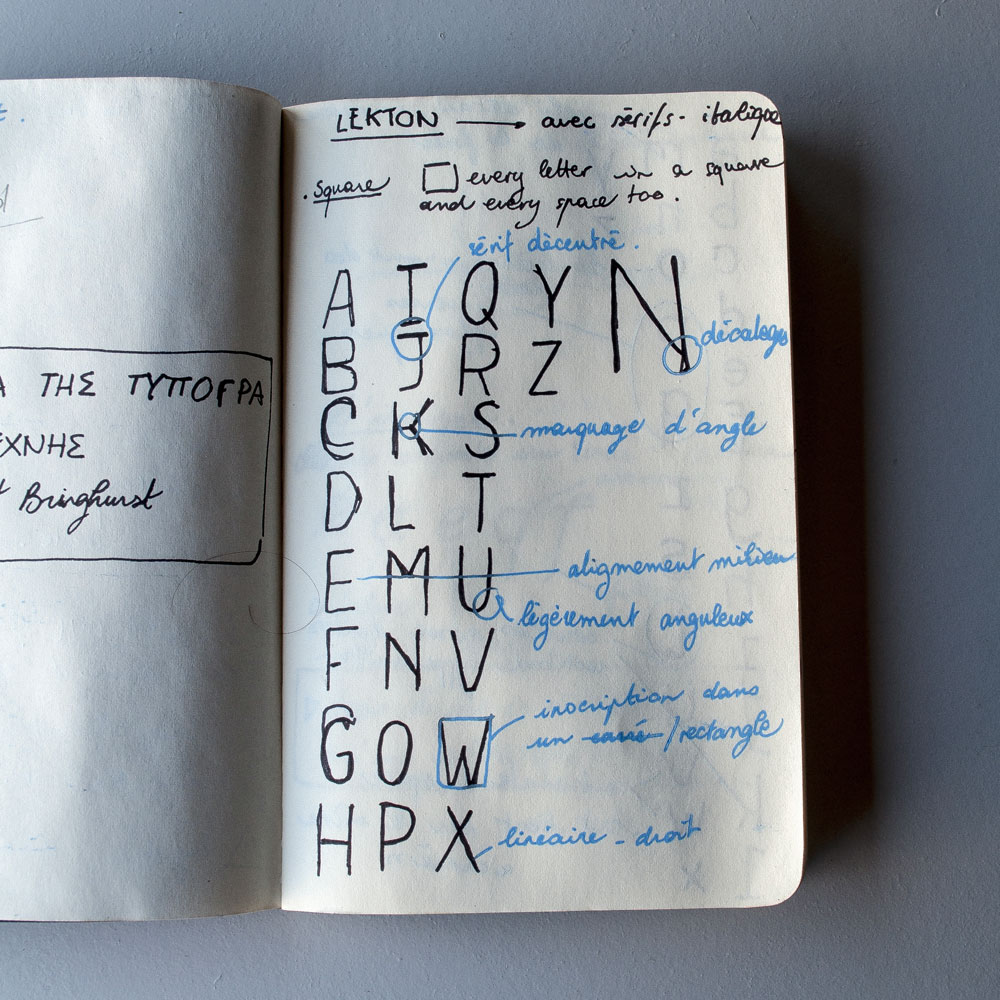 Α ΤΗΣ ΤΥΠΟΓΡΑ
ΕΧΝΗΣ
t Bringhurst
LEKTON → avec sérifs - italique
. Square □ every letter in a square
and every space too.
sérif décentré.
A I Q Y N
décalage
B J R Z
C K S
marquage d'angle
D L T
E M U
alignement milieu
légèrement anguleux
F N V
G O W
inscription dans
un carré / rectangle
H P X
linéaire - droit